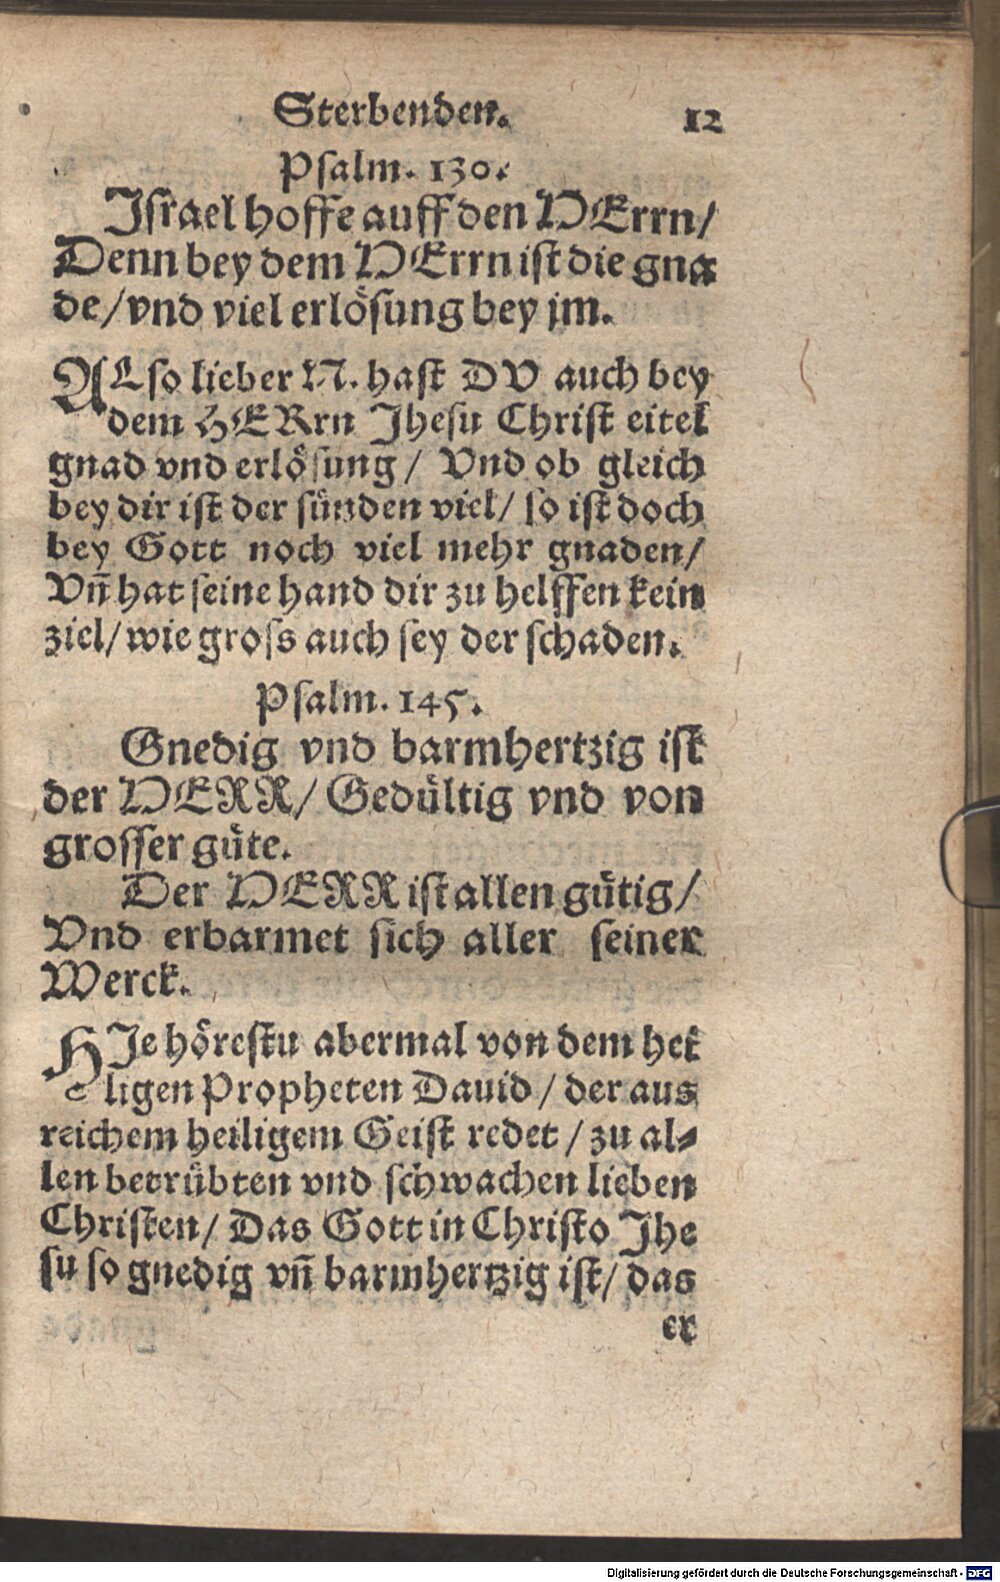 Sterbenden. 12
Psalm. 130.
Jsrael hoffe auff den HErrn/
Denn bey dem HErrn ist die gna
de/vnd viel erlösung bey jm.
ALso lieber N. hast DV auch bey
dem HERrn Jhesu Christ eitel
gnad vnd erlösung/ Vnd ob gleich
bey dir ist der sünden viel/ so ist doch
bey Gott noch viel mehr gnaden/
Vn̄ hat seine hand dir zu helffen kein
ziel/wie gross auch sey der schaden.
Psalm. 145.
Gnedig vnd barmhertzig ist
der HERR/ Gedültig vnd von
grosser güte.
Der HERR ist allen gütig/
Vnd erbarmet sich aller seiner
Werck.
HJe hörestu abermal von dem hei
ligen Propheten Dauid/ der aus
reichem heiligem Geist redet/ zu al-
len betrübten vnd schwachen lieben
Christen/ Das Gott in Christo Jhe
su so gnedig vn̄ barmhertzig ist/ das
er
Digitalisierung gefördert durch die Deutsche Forschungsgemeinschaft - DFG